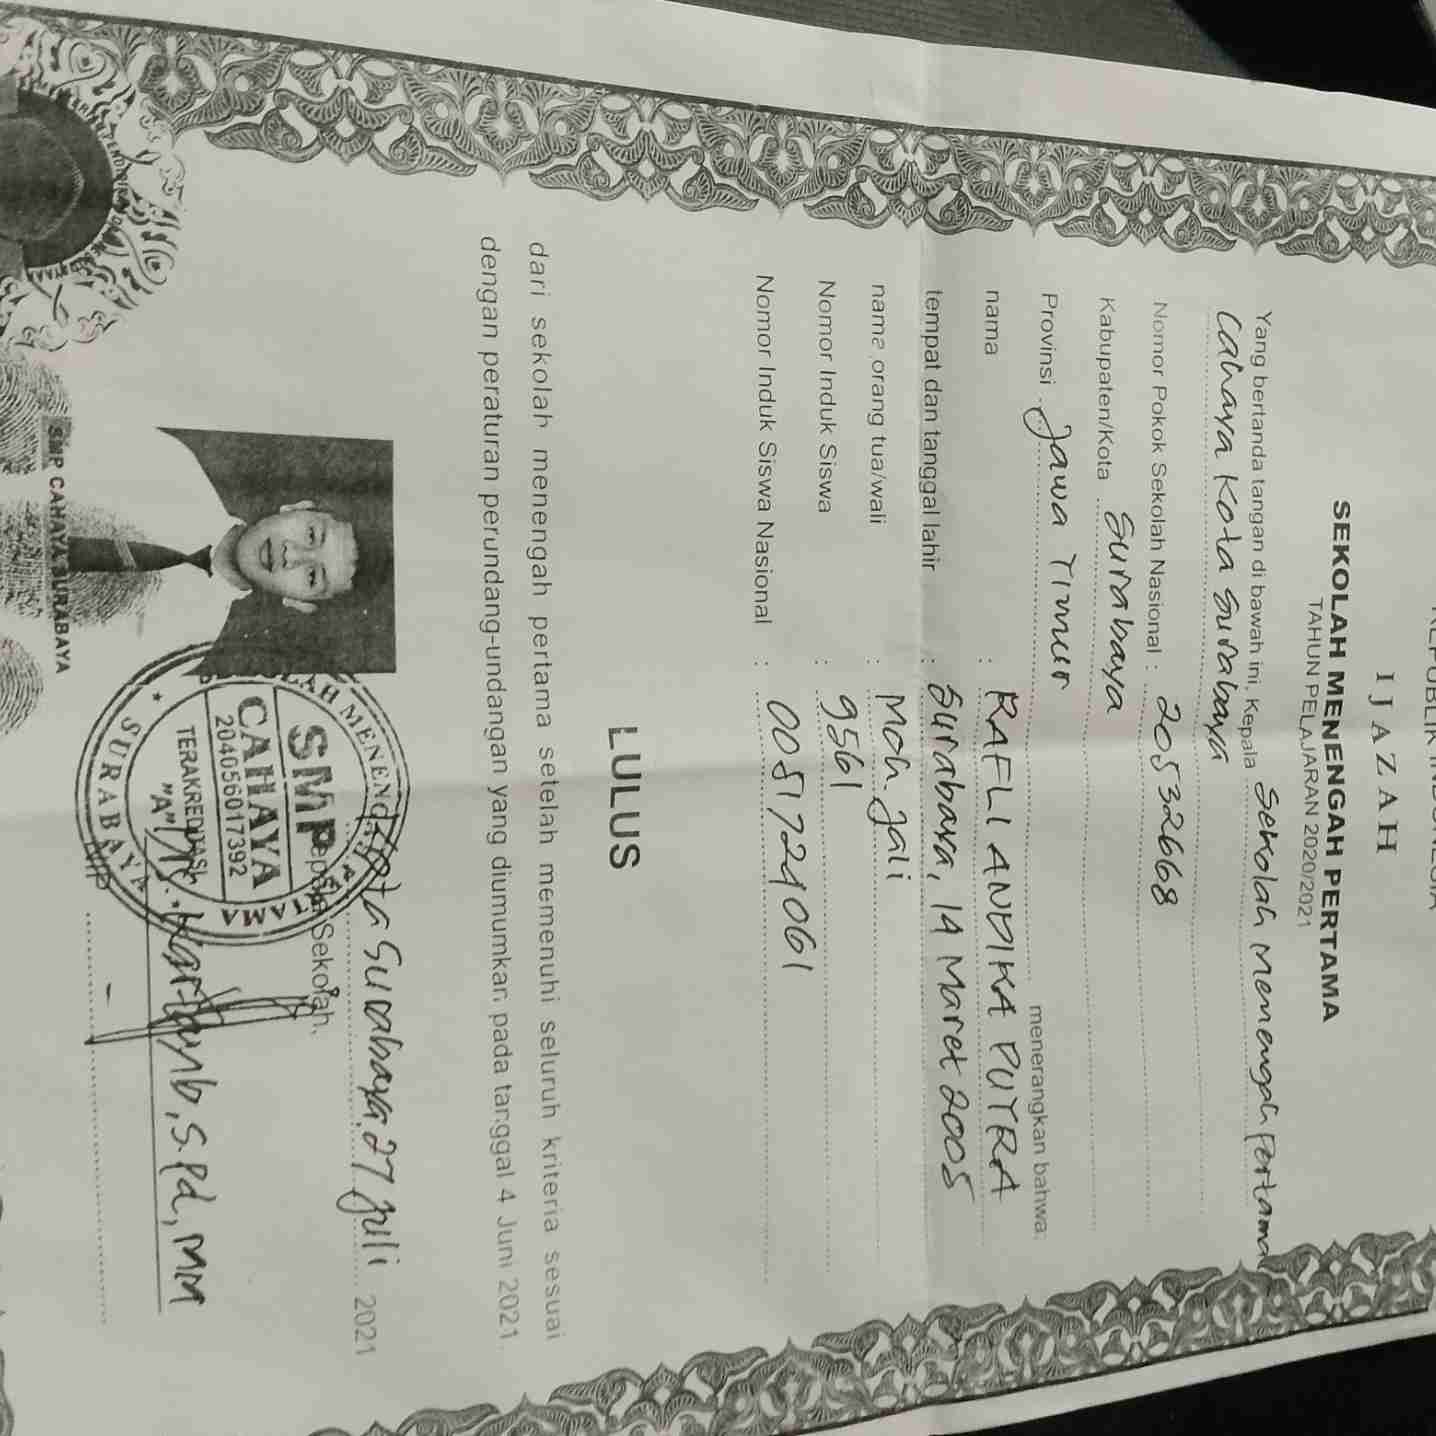 REPUBLIK INDONESIA
IJAZAH
SEKOLAH MENENGAH PERTAMA
TAHUN PELAJARAN 2020/2021
Yang bertanda tangan di bawah ini, Kepala Sekolah Menengah Pertama
Cahaya Kota Surabaya
Nomor Pokok Sekolah Nasional : 20532668
Kabupaten/Kota Surabaya
Provinsi Jawa Timur menerangkan bahwa:
nama : RAFLI ANDIKA PUTRA
tempat dan tanggal lahir : Surabaya, 14 Maret 2005
nama orang tua/wali : Moh. Jali
Nomor Induk Siswa : 9561
Nomor Induk Siswa Nasional : 0051724061
LULUS
dari sekolah menengah pertama setelah memenuhi seluruh kriteria sesuai
dengan peraturan perundang-undangan yang diumumkan pada tanggal 4 Juni 2021.
Kota Surabaya, 27 Juli 2021
Kepala Sekolah,
SEKOLAH MENENGAH PERTAMA
SMP
CAHAYA
204056017392
TERAKREDITASI
"A"
SURABAYA
S.Pd, MM
NIP -
SMP CAHAYA SURABAYA